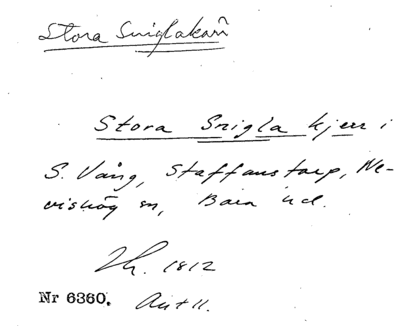 Stora Sniglakärr
Stora Snigla kjerr i
S. Vång, Staffanstorp, Ne-
vishög sn, Bara hd.
1812
Nr 6360.